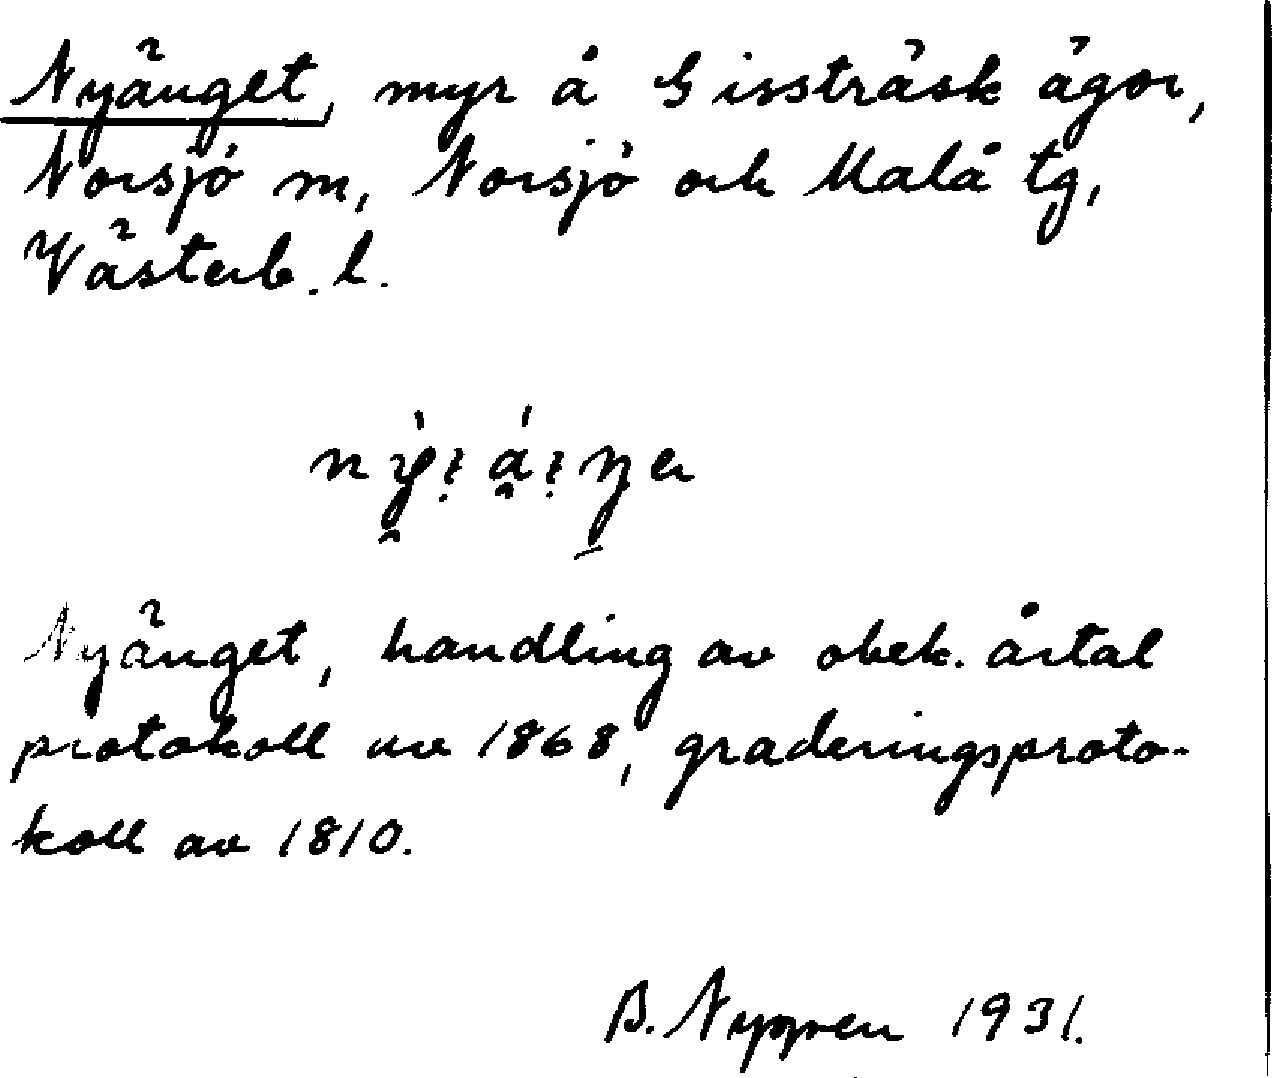 Nyänget, myr å Gissträsk ägor,
Norsjö m, Norsjö och Malå tg,
Västerb. l.
Nyänget, handling av obek. årtal
protokoll av 1868, graderingsproto-
koll av 1810.
B. Nygren 1931.